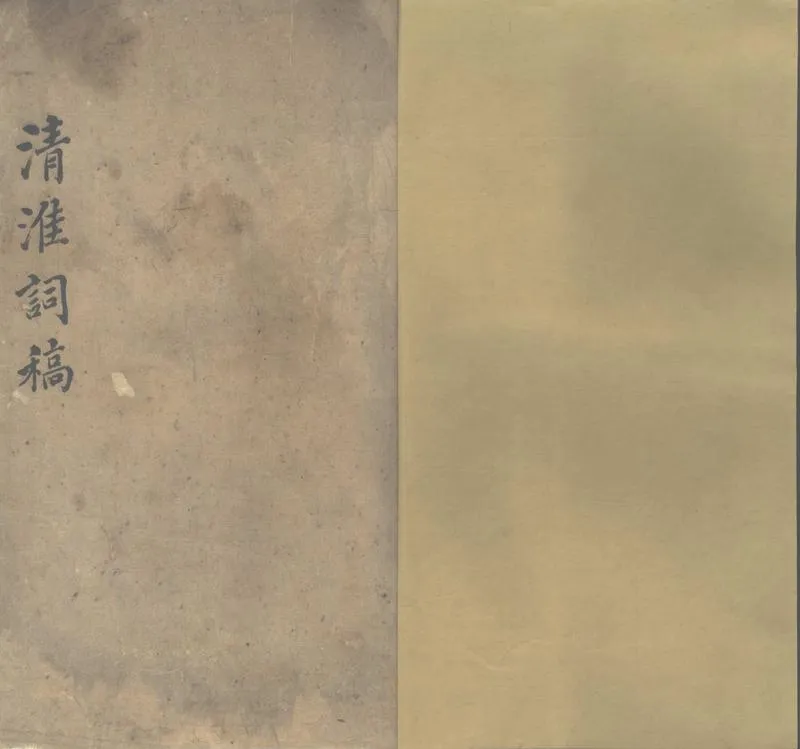 清淮詞稿